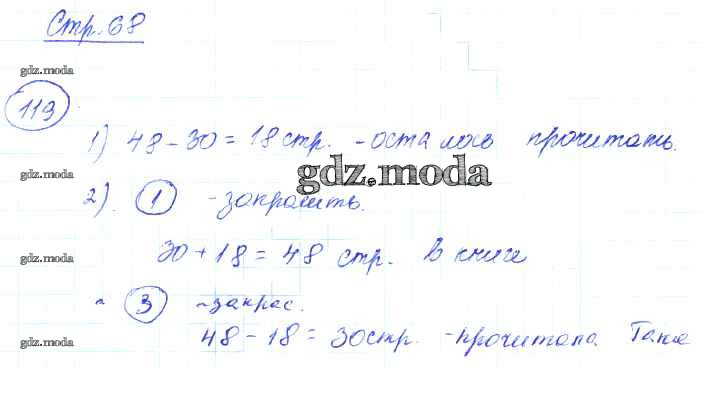 Стр. 68
gdz.moda
119
1) 48 - 30 = 18 стр. - осталось прочитать.
gdz.moda
gdz.moda
2). 1 - закрасить.
30 + 18 = 48 стр. в книге
gdz.moda
~ 3 ~ закрас.
48 - 18 = 30 стр. - прочитала Таня
gdz.moda